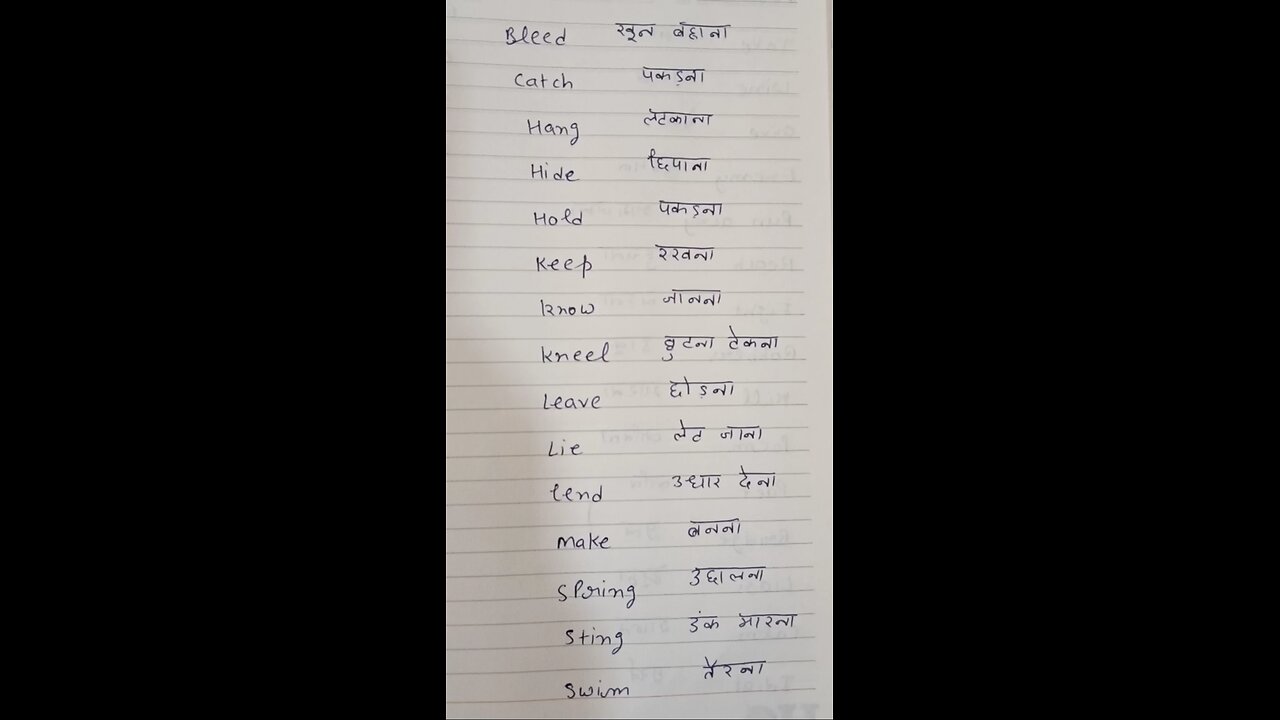 Bleed खून बहाना
Catch पकड़ना
Hang लटकाना
Hide छिपाना
Hold पकड़ना
Keep रखना
know जानना
kneel घुटना टेकना
Leave छोड़ना
Lie लेट जाना
lend उधार देना
make बनना
spring उछालना
Sting डंक मारना
swim तैरना